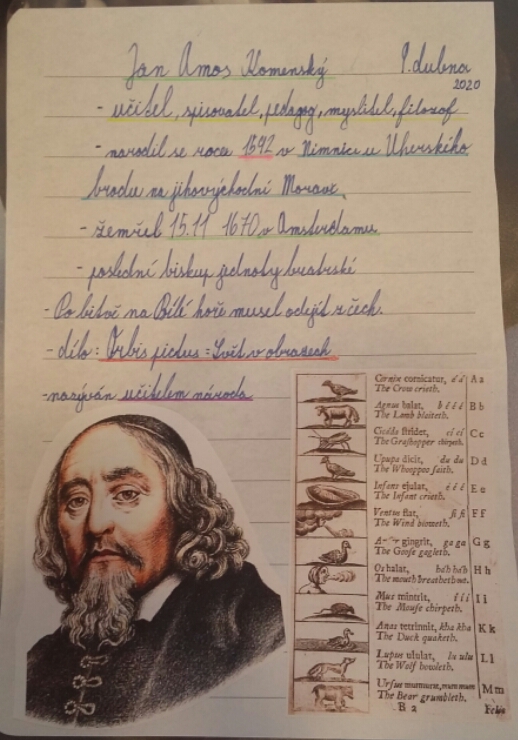 Jan Amos Komenský 9. dubna
2020
- učitel, spisovatel, pedagog, myslitel, filozof
- narodil se roce 1592 v Nivnici u Uherského
brodu na jihovýchodní Moravě.
- žemřel 15.11 1670 v Amsterdamu
- poslední biskup jednoty bratrské
- Po bitvě na Bílé hoře musel odejít z čech.
- dílo: Orbis pictus = Svět v obrazech
- nazýván učitelem národa
Cornix cornicatur, á á A a
The Crow crieth.
Agnus balat, b é é é B b
The Lamb blaiteth.
Cicáda stridet, cí cí C c
The Grashopper chirpeth.
Upupa dicit, du du D d
The Whooppoo saith.
Infans ejulat, é é é E e
The Infant crieth.
Ventus flat, fi fi F f
The Wind bloweth.
gingrit, ga ga G g
The Goose gagleth.
Os halat, háh háh H h
The mouth breatheth out.
Mus mintrit, í í í I i
The Mouse chirpeth.
Anas tetrinnit, kha kha K k
The Duck quaketh.
Lupus ululat, lu ulu L l
The Wolf howleth.
Ursus murmurat, mum mum M m
The Bear grumbleth.
B 2 Felis